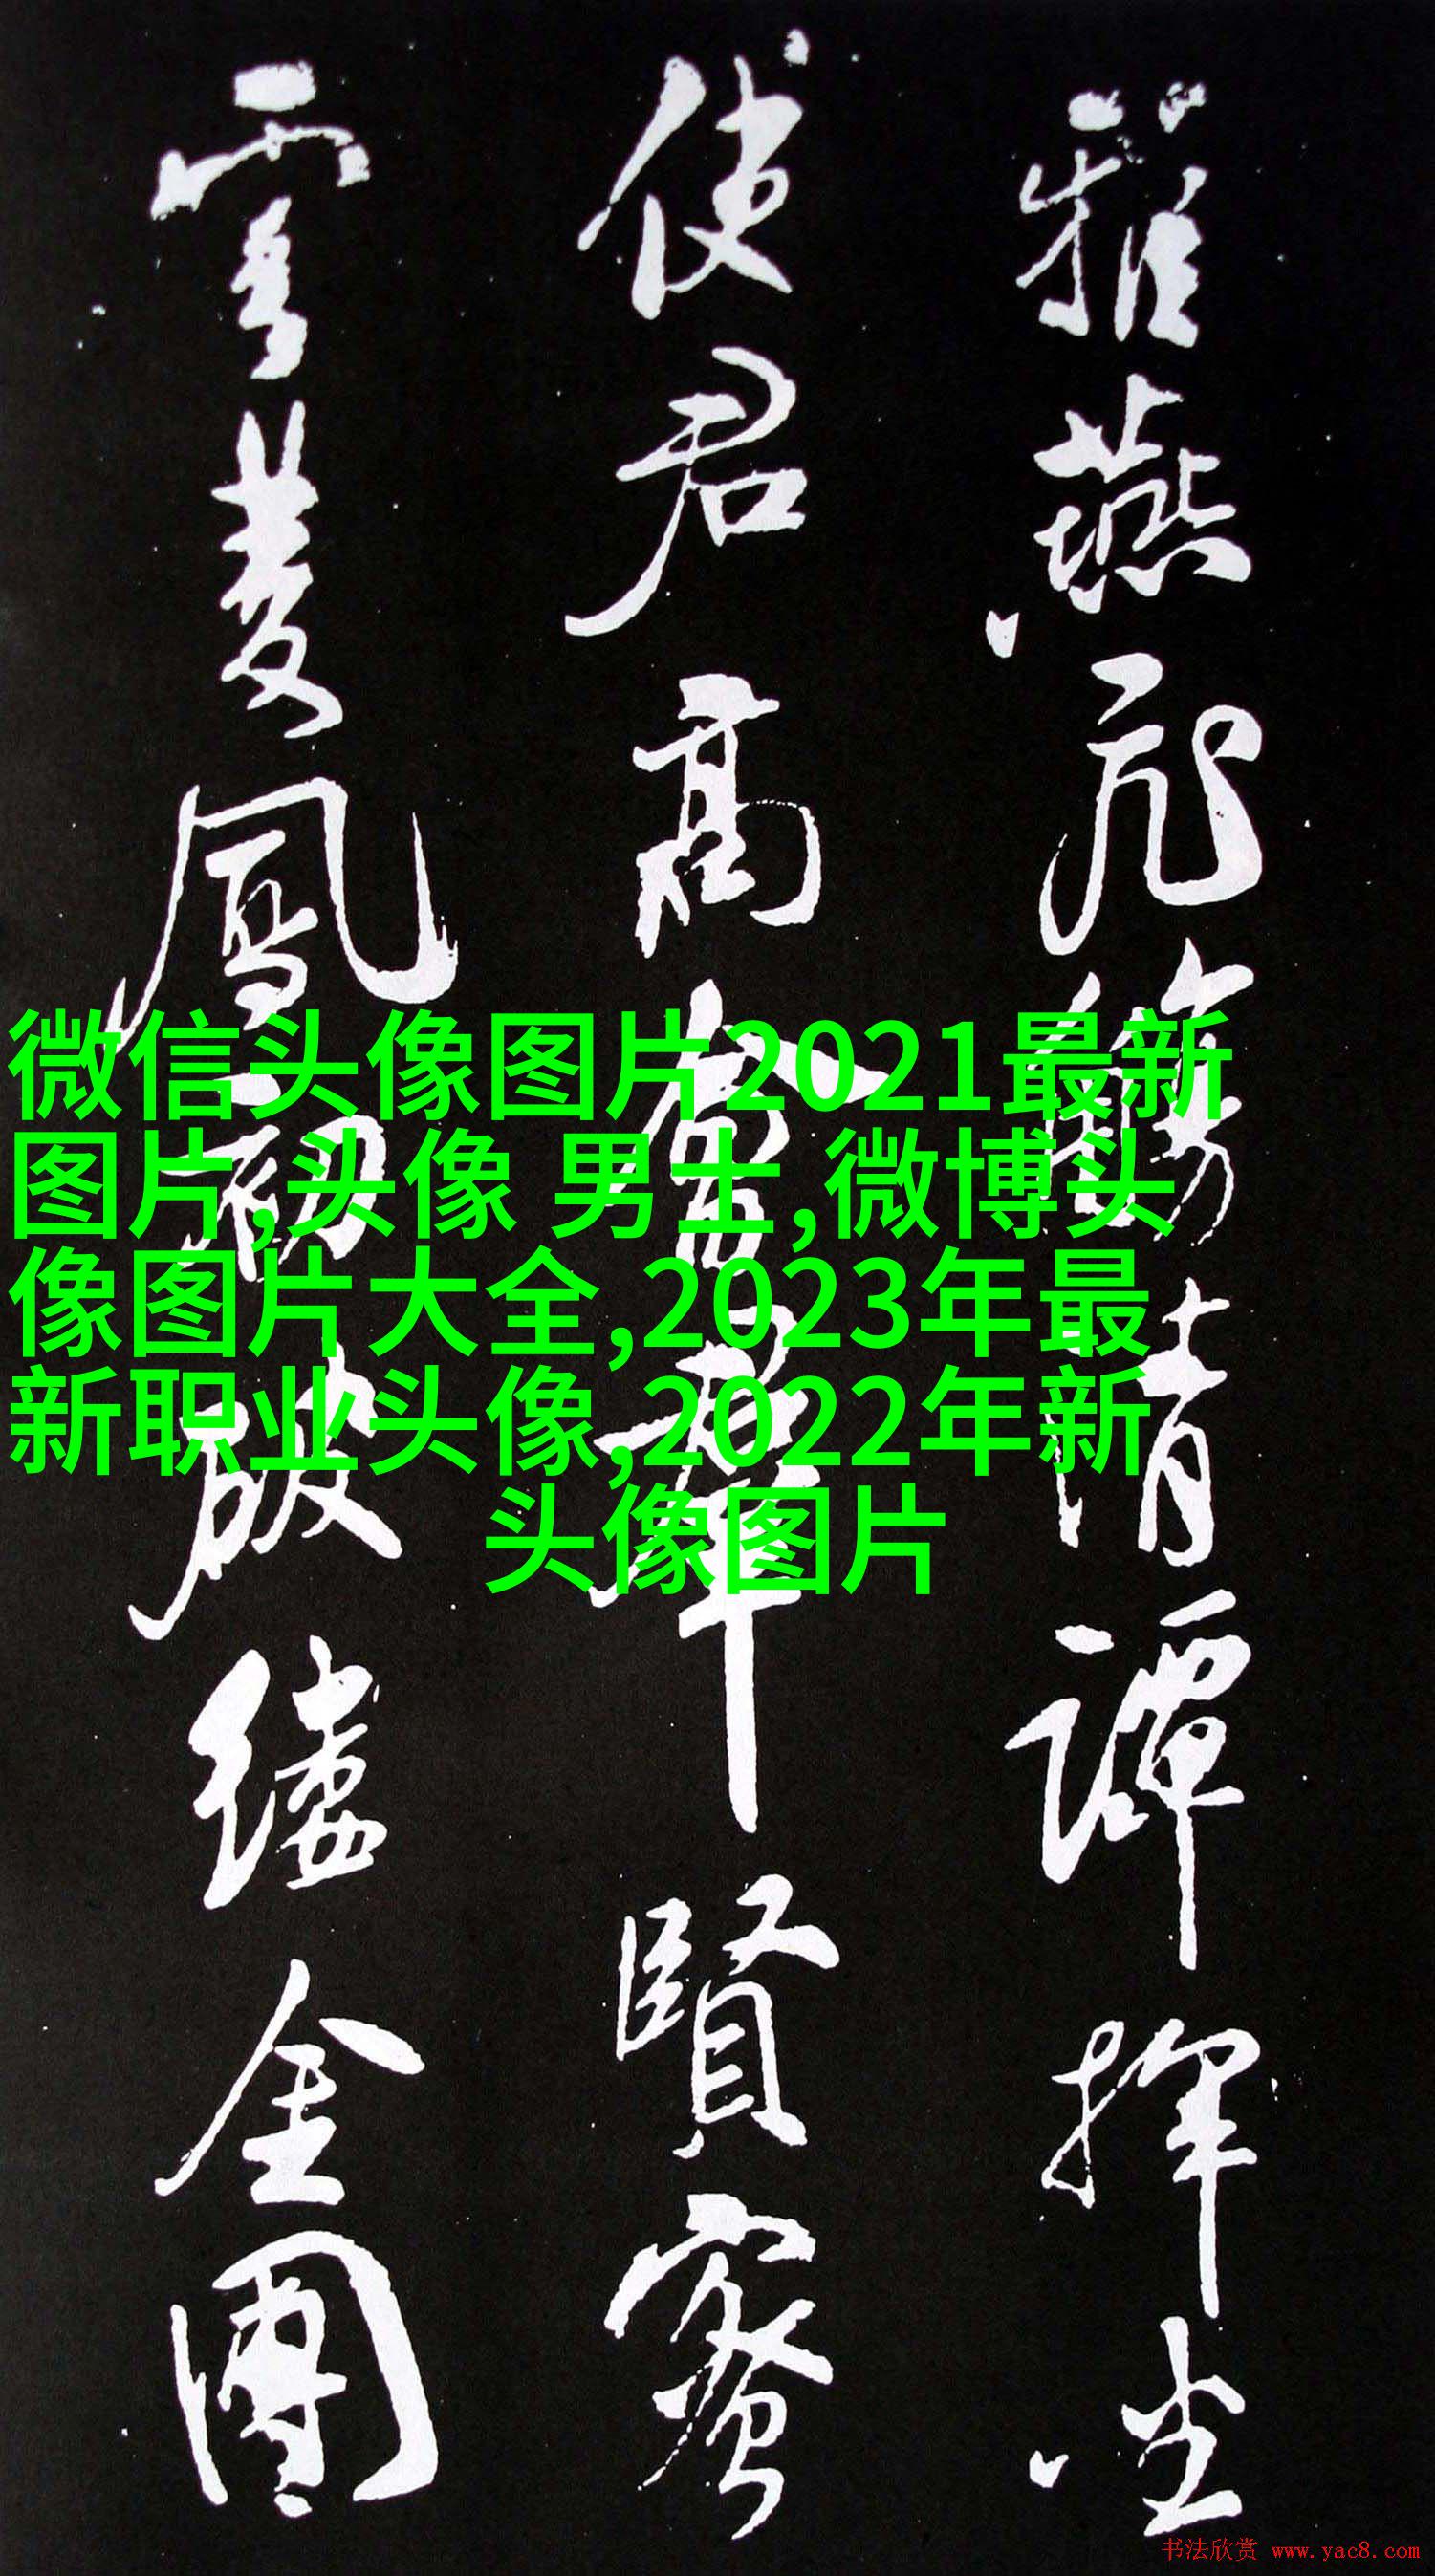 雅燕飛觴清譚揮坐
使君高會羣賢密
雲雙鳳初破縷金團
微信头像图片2021最新
图片,头像 男士,微博头
像图片大全,2023年最
新职业头像,2022年新
头像图片
书法欣赏 www.yac8.com